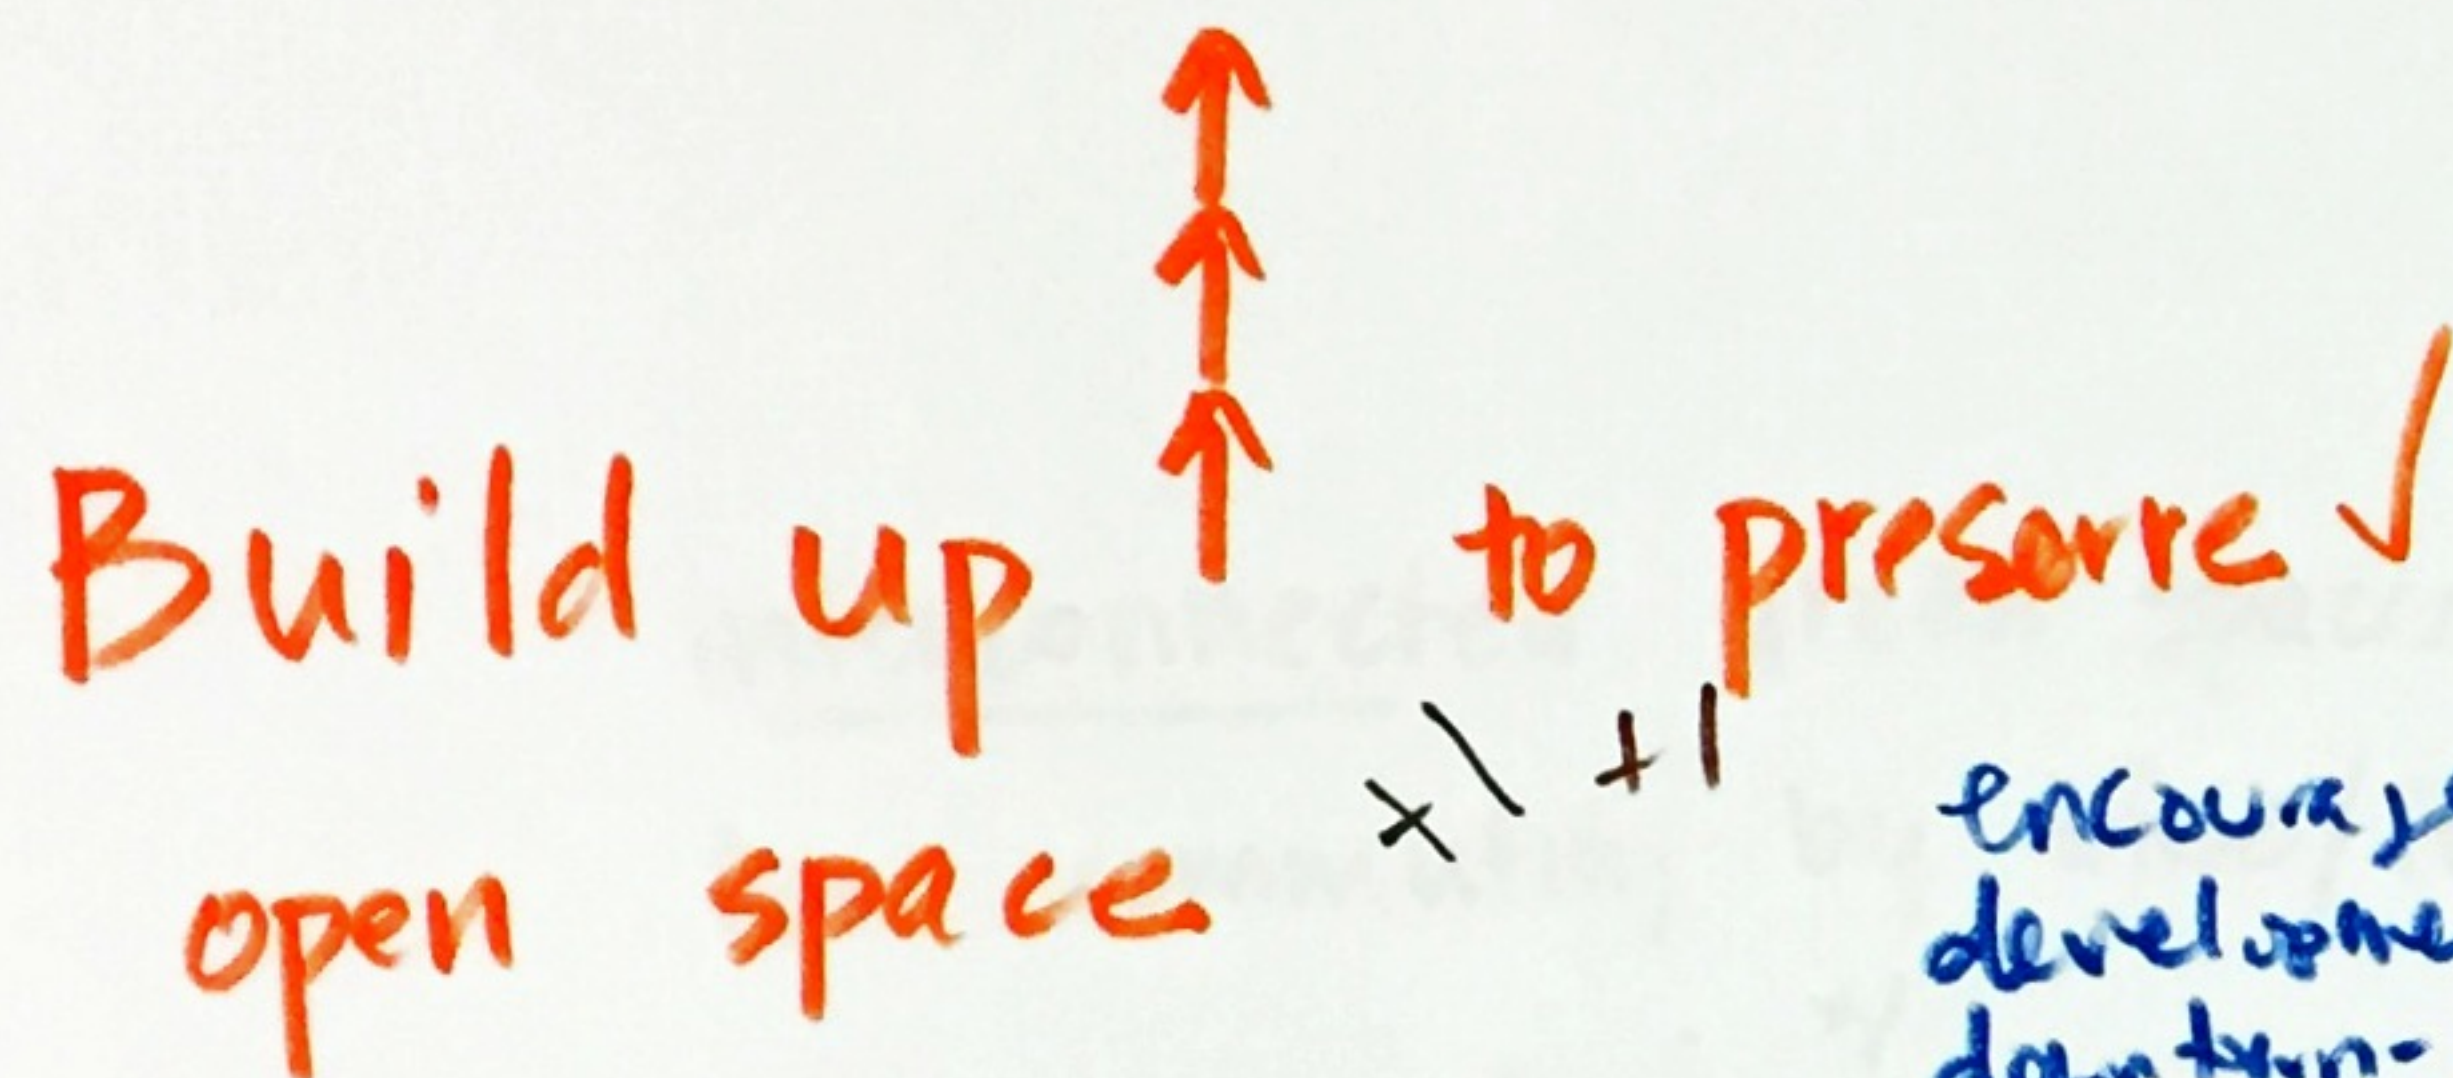 Build up ↑↑↑ to preserve ✓
open space +1 +1
encourage
developme
downtown-